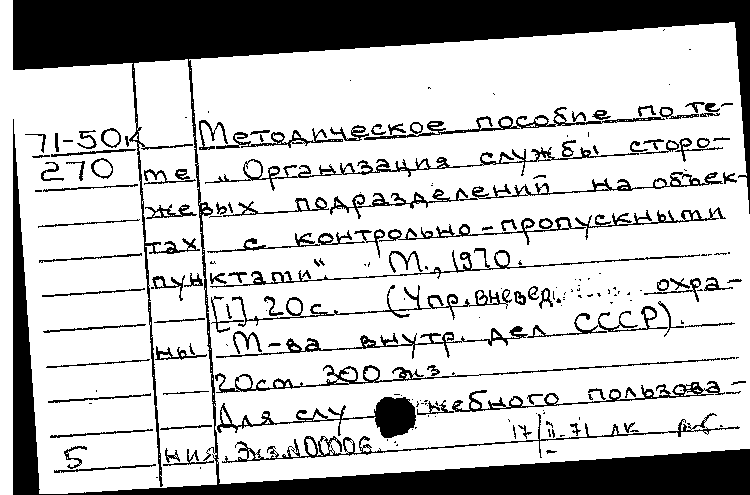 71-50к Методическое пособие по те-
270 ме „Организация службы сторо-
жевых подразделений на объек-
тах с контрольно-пропускными
пунктами". М., 1970.
[1], 20с. (Упр. вневед. охра-
ны М-ва внутр. дел СССР).
20см. 300 экз.
Для служебного пользова-
5 ния. Экз. N00006. 17/II-71 ЛК